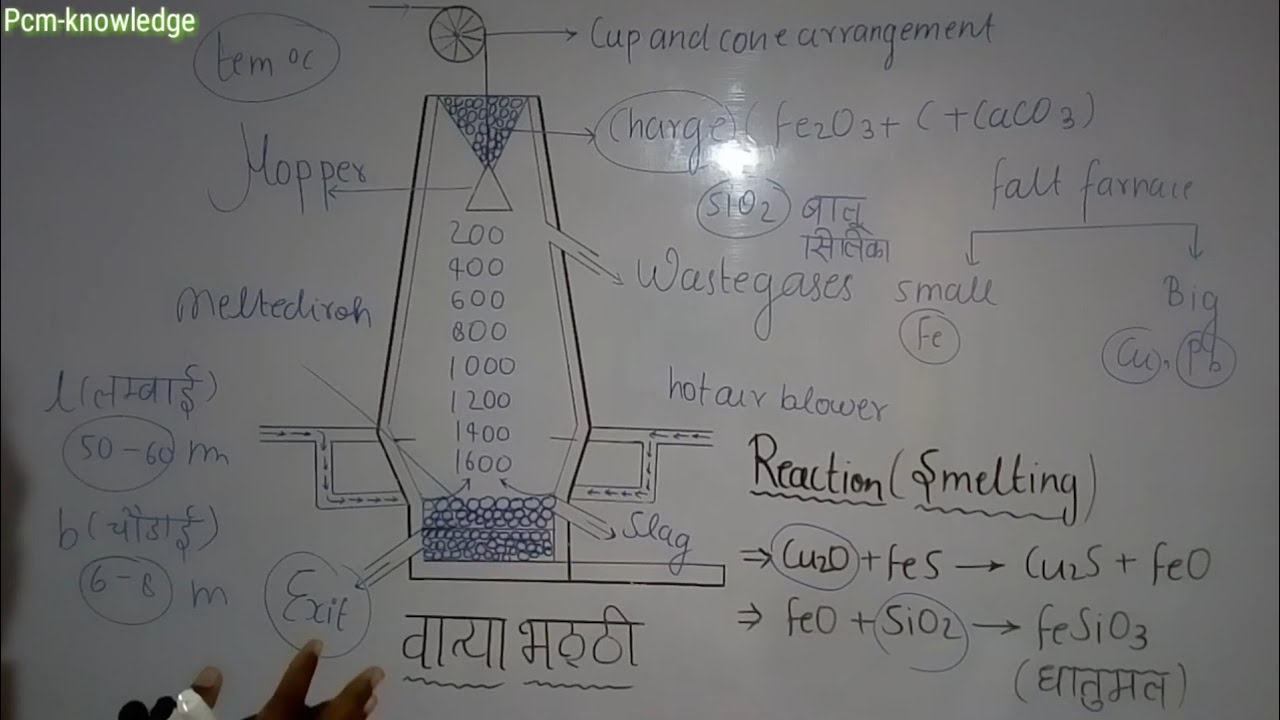 Pcm-knowledge
tem °c
Cup and cone arrangement
Charge (Fe2O3 + C + CaCO3)
Hopper
SiO2 बालू
सिलिका
falt farnace
small
Big
Fe
Cu, Pb
200
400
600
800
1000
1200
1400
1600
Wastegases
Meltediroh
l (लम्बाई)
50-60 m
b (चौडाई)
6-8 m
hot air blower
Slag
Exit
वात्या भठ्ठी
Reaction (Smelting)
⇒ Cu2O + FeS → Cu2S + FeO
⇒ FeO + SiO2 → FeSiO3
(धातुमल)